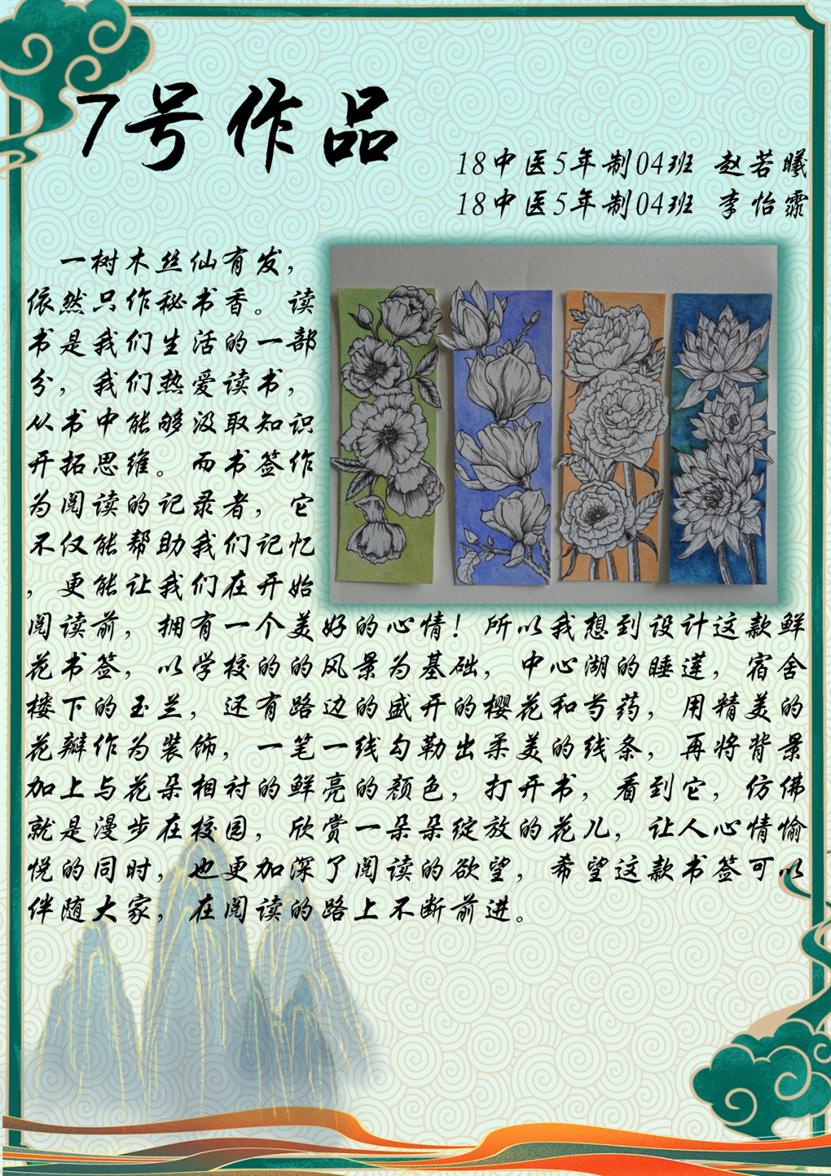 7号作品
18中医5年制04班 赵若曦
18中医5年制04班 李怡霏
一树木丝仙有发，
依然只作秘书香。读
书是我们生活的一部
分，我们热爱读书，
从书中能够汲取知识
开拓思维。而书签作
为阅读的记录者，它
不仅能帮助我们记忆
，更能让我们在开始
阅读前，拥有一个美好的心情！所以我想到设计这款鲜
花书签，以学校的的风景为基础，中心湖的睡莲，宿舍
楼下的玉兰，还有路边的盛开的樱花和芍药，用精美的
花瓣作为装饰，一笔一线勾勒出柔美的线条，再将背景
加上与花朵相衬的鲜亮的颜色，打开书，看到它，仿佛
就是漫步在校园，欣赏一朵朵绽放的花儿，让人心情愉
悦的同时，也更加深了阅读的欲望，希望这款书签可以
伴随大家，在阅读的路上不断前进。